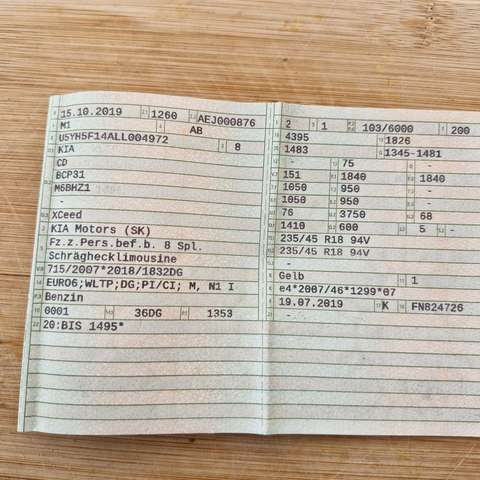 15.10.2019 1260 AEJ000876
M1 AB
U5YH5F14ALL004972 8
KIA
CD
BCP31
M6BHZ1
-
XCeed
KIA Motors (SK)
Fz.z.Pers.bef.b. 8 Spl.
Schräghecklimousine
715/2007*2018/1832DG
EURO6;WLTP;DG;PI/CI; M, N1 I
Benzin
0001 36DG 1353
20:BIS 1495*
2 1 103/6000 200
4395 1826
1483 1345-1481
- 75 -
151 1840 1840
1050 950 -
1050 950 -
76 3750 68
1410 600 5 -
235/45 R18 94V
235/45 R18 94V
-
Gelb 1
e4*2007/46*1299*07
19.07.2019 K FN824726
-